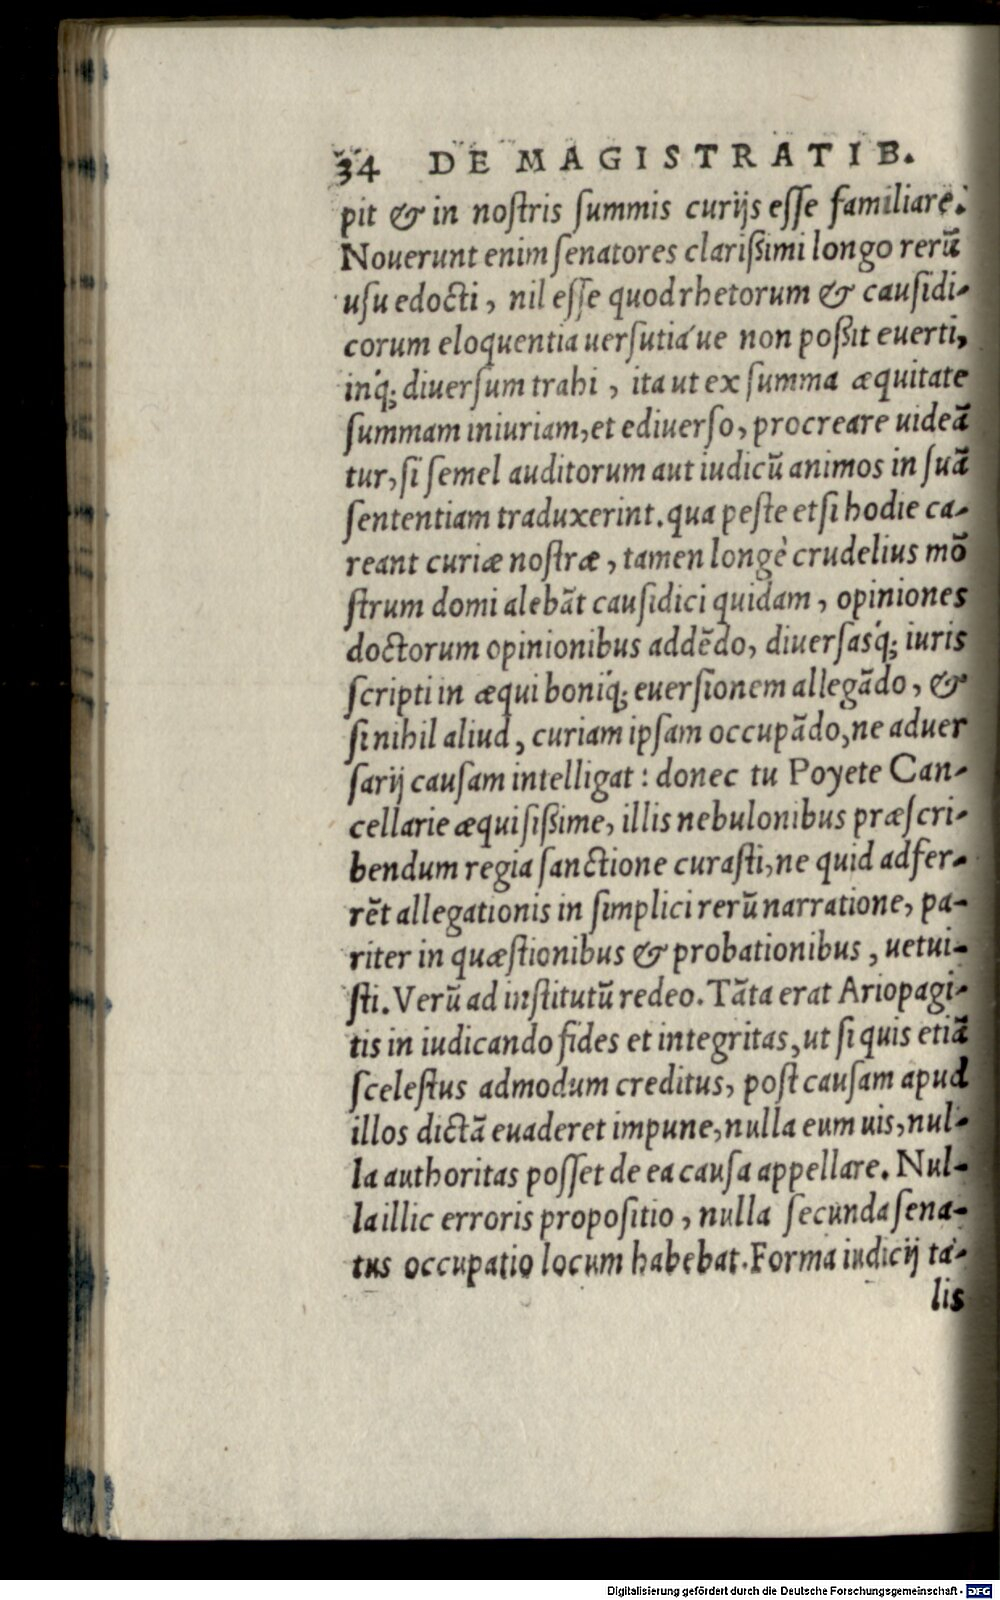 34 DE MAGISTRATIB.
pit & in nostris summis curijs esse familiare.
Nouerunt enim senatores clarißimi longo rerū
usu edocti, nil esse quod rhetorum & causidi-
corum eloquentia uersutiáue non poßit euerti,
inq́; diuersum trahi, ita ut ex summa æquitate
summam iniuriam, et ediuerso, procreare uideā
tur, si semel auditorum aut iudicū animos in suā
sententiam traduxerint. qua peste etsi hodie ca-
reant curiæ nostræ, tamen longè crudelius mō
strum domi alebāt causidici quidam, opiniones
doctorum opinionibus addēdo, diuersasq́; iuris
scripti in æqui boniq́; euersionem allegādo, &
si nihil aliud, curiam ipsam occupādo, ne aduer
sarij causam intelligat: donec tu Poyete Can-
cellarie æquisißime, illis nebulonibus præscri-
bendum regia sanctione curasti, ne quid adfer-
rēt allegationis in simplici rerū narratione, pa-
riter in quæstionibus & probationibus, uetui-
sti. Verū ad institutū redeo. Tāta erat Ariopagi-
tis in iudicando fides et integritas, ut si quis etiā
scelestus admodum creditus, post causam apud
illos dictā euaderet impune, nulla eum uis, nul-
la authoritas posset de ea causa appellare. Nul-
la illic erroris propositio, nulla secunda sena-
tus occupatio locum habebat. Forma iudicij ta-
lis
Digitalisierung gefördert durch die Deutsche Forschungsgemeinschaft - DFG